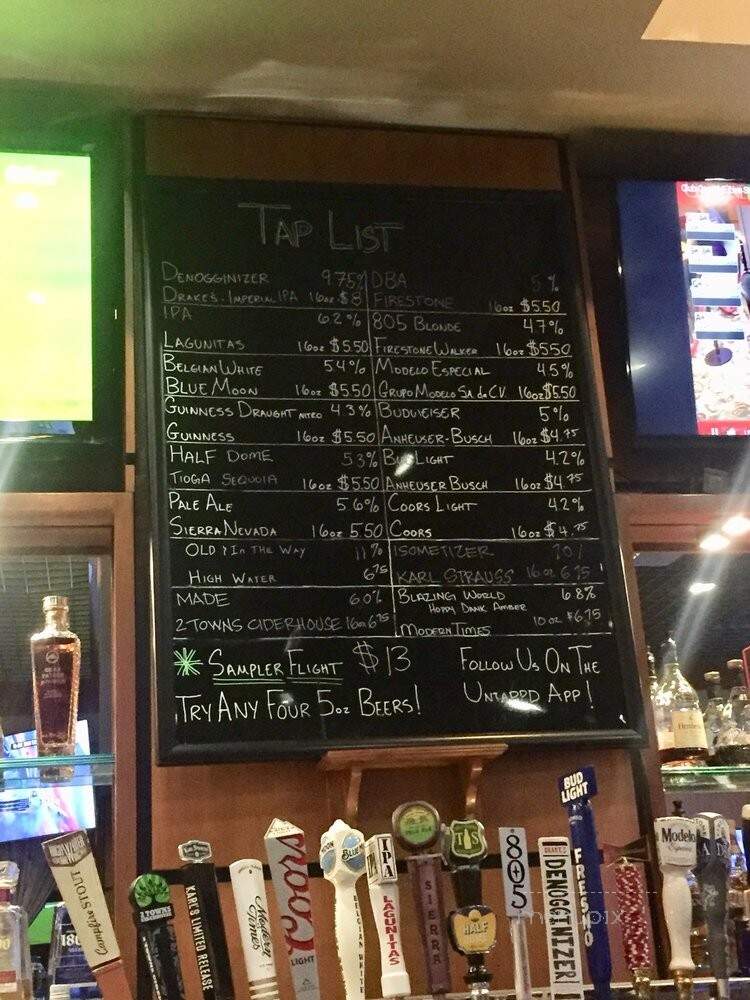 TAP LIST
DENOGGINIZER 9.75%
DRAKE'S - IMPERIAL IPA 16oz $8
IPA 6.2%
LAGUNITAS 16oz $5.50
BELGIAN WHITE 5.4%
BLUE MOON 16oz $5.50
GUINNESS DRAUGHT NITRO 4.3%
GUINNESS 16oz $5.50
HALF DOME 5.3%
TIOGA SEQUOIA 16oz $5.50
PALE ALE 5.6%
SIERRA NEVADA 16oz 5.50
OLD & IN THE WAY 11%
HIGH WATER 6.75
MADE 6.0%
2 TOWNS CIDERHOUSE 16oz 6.75
DBA 5%
FIRESTONE 16oz $5.50
805 BLONDE 4.7%
FIRESTONE WALKER 16oz $5.50
MODELO ESPECIAL 4.5%
GRUPO MODELO S.A. de C.V. 16oz $5.50
BUDWEISER 5%
ANHEUSER-BUSCH 16oz $4.75
BUD LIGHT 4.2%
ANHEUSER BUSCH 16oz $4.75
COORS LIGHT 4.2%
COORS 16oz $4.75
ISOMETIZER
KARL STRAUSS 16oz 6.75
BLAZING WORLD 6.8%
HOPPY DANK AMBER
MODERN TIMES 10oz $6.75
SAMPLER FLIGHT $13
TRY ANY FOUR 5oz BEERS!
FOLLOW US ON THE
UNTAPPD APP!
HIGH WATER
Campfire STOUT
2 TOWNS
KARL'S LIMITED RELEASE
Modern Times
Coors
LIGHT
BLUE
BELGIAN WHITE
IPA
LAGUNITAS
SIERRA
TS
HALF
805
DRAKE'S
DENOGGINIZER
BUD LIGHT
FRESNO
Modelo
Hennessy